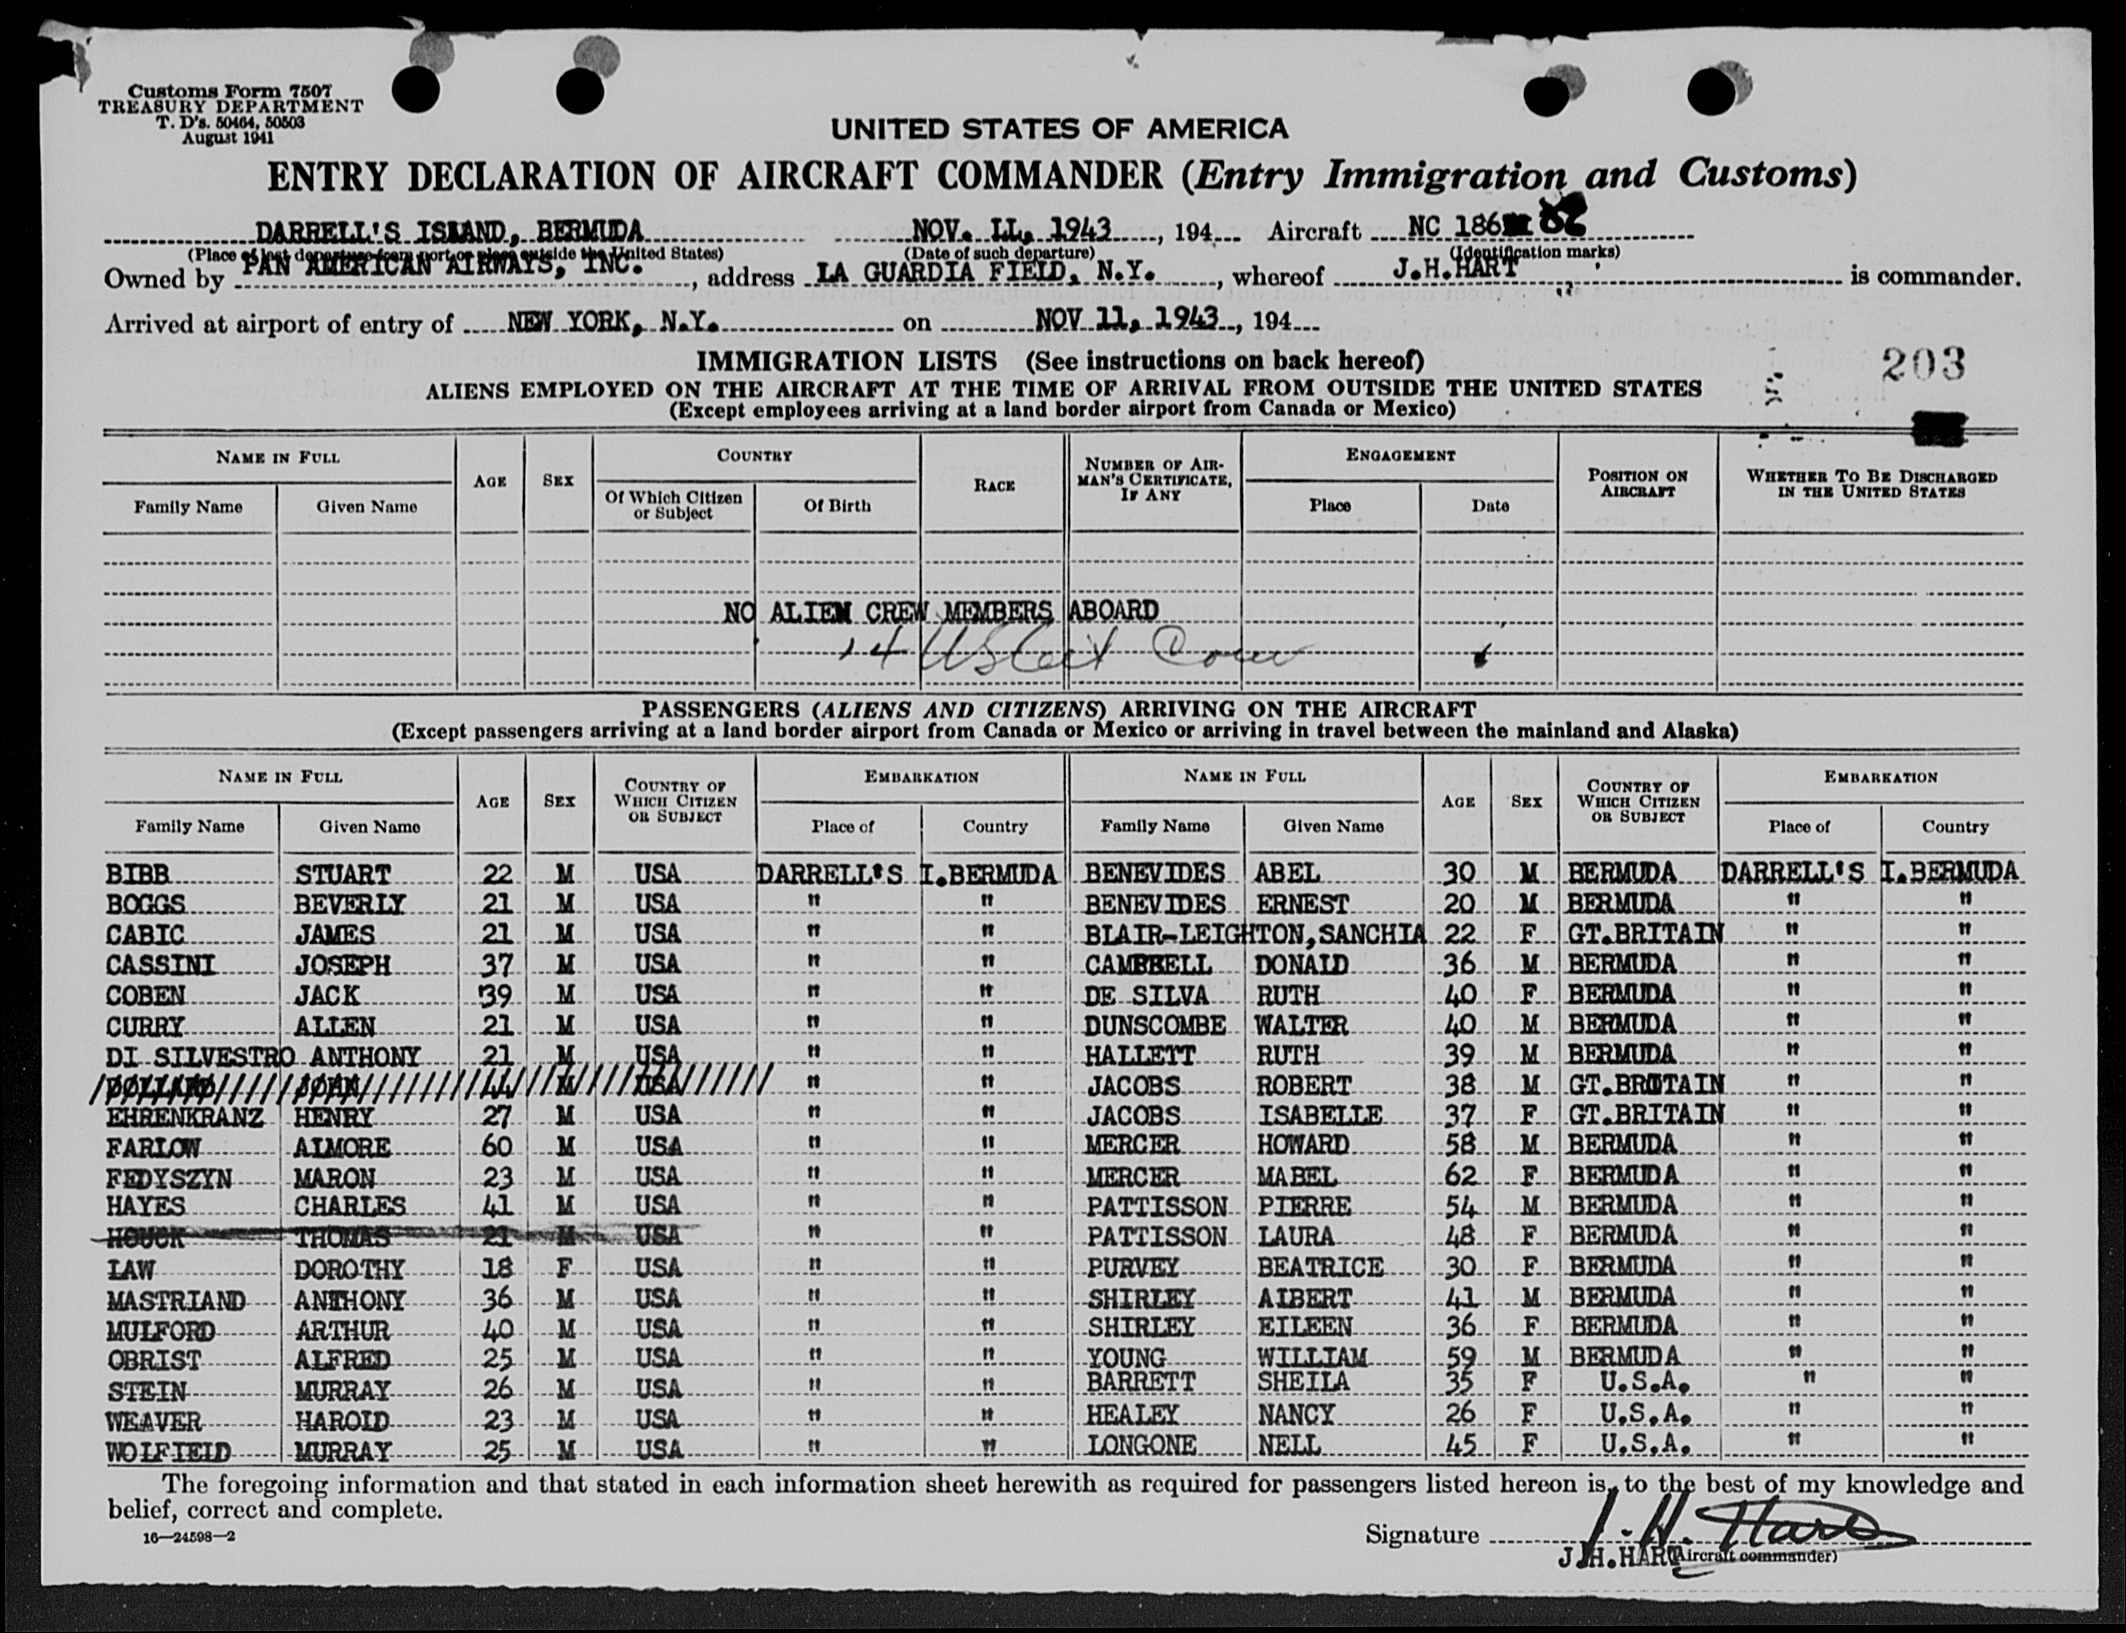 Customs Form 7507
TREASURY DEPARTMENT
T. D's. 50464, 50503
August 1941
UNITED STATES OF AMERICA
ENTRY DECLARATION OF AIRCRAFT COMMANDER (Entry Immigration and Customs)
DARRELL'S ISLAND, BERMUDA NOV. LL, 1943, 194 Aircraft NC 186
(Place of last departure from port or place outside the United States) (Date of such departure) (Identification marks)
Owned by PAN AMERICAN AIRWAYS, INC., address LA GUARDIA FIELD, N.Y., whereof J.H.HART is commander.
Arrived at airport of entry of NEW YORK, N.Y. on NOV 11, 1943, 194
IMMIGRATION LISTS (See instructions on back hereof)
203
ALIENS EMPLOYED ON THE AIRCRAFT AT THE TIME OF ARRIVAL FROM OUTSIDE THE UNITED STATES
(Except employees arriving at a land border airport from Canada or Mexico)
NAME IN FULL AGE SEX COUNTRY RACE NUMBER OF AIRMAN'S CERTIFICATE, IF ANY ENGAGEMENT POSITION ON AIRCRAFT WHETHER TO BE DISCHARGED IN THE UNITED STATES
Family Name Given Name Of Which Citizen or Subject Of Birth Place Date
NO ALIEN CREW MEMBERS ABOARD
14
PASSENGERS (ALIENS AND CITIZENS) ARRIVING ON THE AIRCRAFT
(Except passengers arriving at a land border airport from Canada or Mexico or arriving in travel between the mainland and Alaska)
NAME IN FULL AGE SEX COUNTRY OF WHICH CITIZEN OR SUBJECT EMBARKATION NAME IN FULL AGE SEX COUNTRY OF WHICH CITIZEN OR SUBJECT EMBARKATION
Family Name Given Name Place of Country Family Name Given Name Place of Country
BIBB STUART 22 M USA DARRELL'S I.BERMUDA BENEVIDES ABEL 30 M BERMUDA DARRELL'S I.BERMUDA
BOGGS BEVERLY 21 M USA " " BENEVIDES ERNEST 20 M BERMUDA " "
CABIC JAMES 21 M USA " " BLAIR-LEIGHTON, SANCHIA 22 F GT.BRITAIN " "
CASSINI JOSEPH 37 M USA " " CAMPBELL DONALD 36 M BERMUDA " "
COBEN JACK 39 M USA " " DE SILVA RUTH 40 F BERMUDA " "
CURRY ALLEN 21 M USA " " DUNSCOMBE WALTER 40 M BERMUDA " "
DI SILVESTRO ANTHONY 21 M USA " " HALLETT RUTH 39 M BERMUDA " "
DOLLARD JOHN 44 M USA " " JACOBS ROBERT 38 M GT.BRITAIN " "
EHRENKRANZ HENRY 27 M USA " " JACOBS ISABELLE 37 F GT.BRITAIN " "
FARLOW ALMORE 60 M USA " " MERCER HOWARD 58 M BERMUDA " "
FEDYSZYN MARON 23 M USA " " MERCER MABEL 62 F BERMUDA " "
HAYES CHARLES 41 M USA " " PATTISSON PIERRE 54 M BERMUDA " "
HOUCK THOMAS 21 M USA " " PATTISSON LAURA 48 F BERMUDA " "
LAW DOROTHY 18 F USA " " PURVEY BEATRICE 30 F BERMUDA " "
MASTRIAND ANTHONY 36 M USA " " SHIRLEY ALBERT 41 M BERMUDA " "
MULFORD ARTHUR 40 M USA " " SHIRLEY EILEEN 36 F BERMUDA " "
OBRIST ALFRED 25 M USA " " YOUNG WILLIAM 59 M BERMUDA " "
STEIN MURRAY 26 M USA " " BARRETT SHEILA 35 F U.S.A. " "
WEAVER HAROLD 23 M USA " " HEALEY NANCY 26 F U.S.A. " "
WOLFIELD MURRAY 25 M USA " " LONGONE NELL 45 F U.S.A. " "
The foregoing information and that stated in each information sheet herewith as required for passengers listed hereon is, to the best of my knowledge and
belief, correct and complete.
16—24598—2
Signature J. H. Hart
J.H.HART (Aircraft commander)